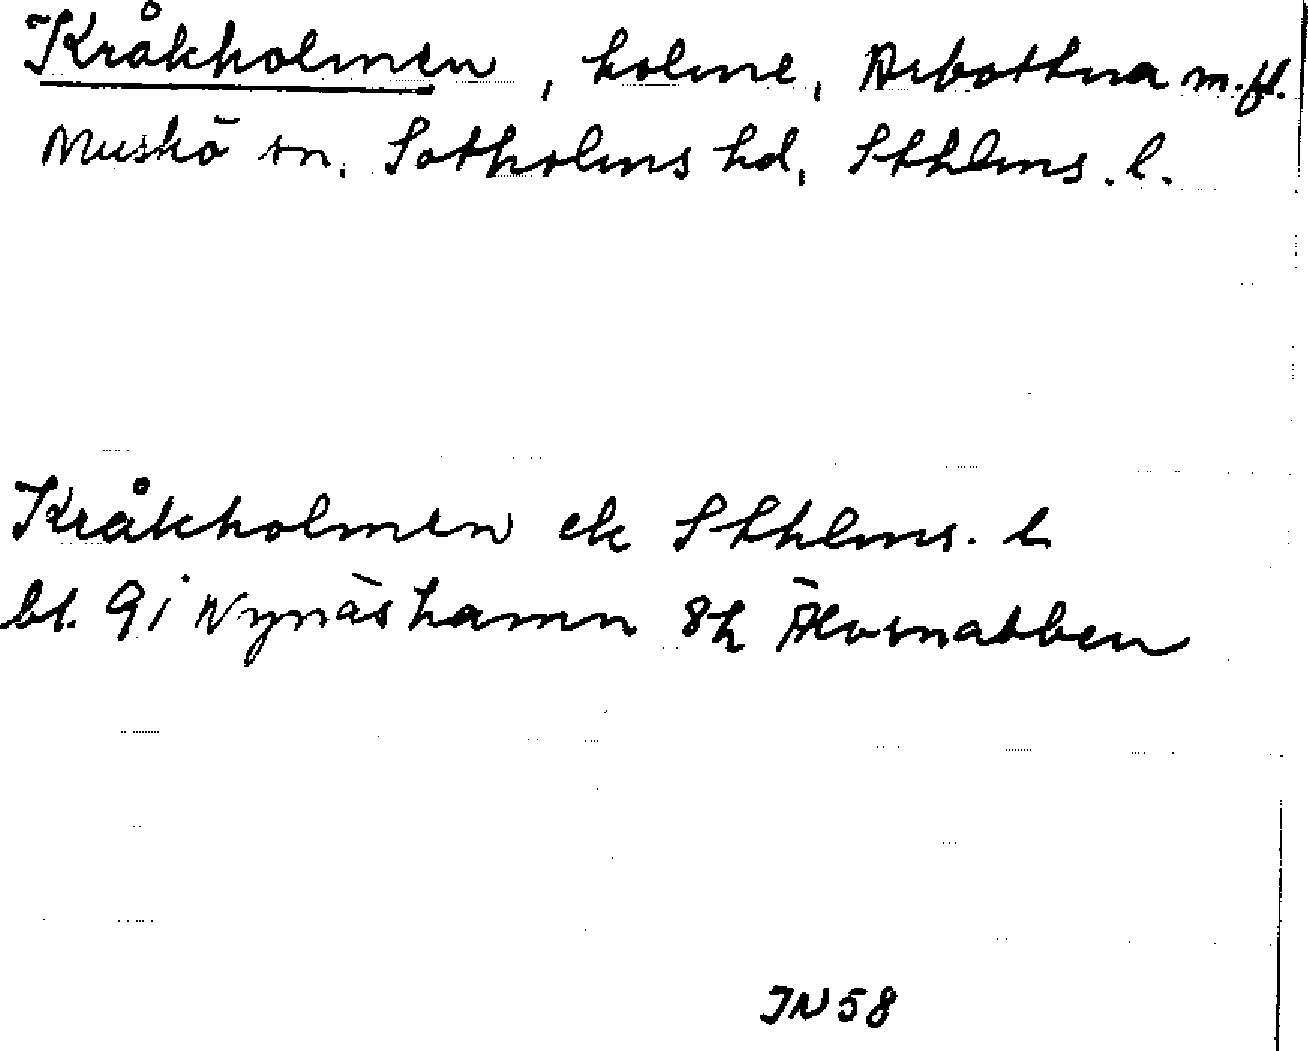 Kråkholmen, holme, Arbottna m.fl.
Muskö sn. Sotholms hd, Sthlms. l.
Kråkholmen ek Sthlms. l
bl. 9i Nynäshamn 8h Älvsnabben
IN58